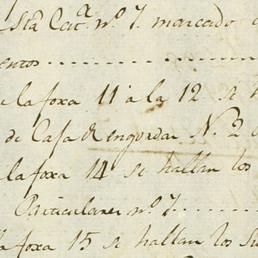 Sta Cat.ª nº 7. marcado
entos
e la foxa 11 à la 12 se h
de Casa de engordar N. 2
la foxa 14 se hallan los
Particulares nº 7.
la foxa 15 se hallan los Su